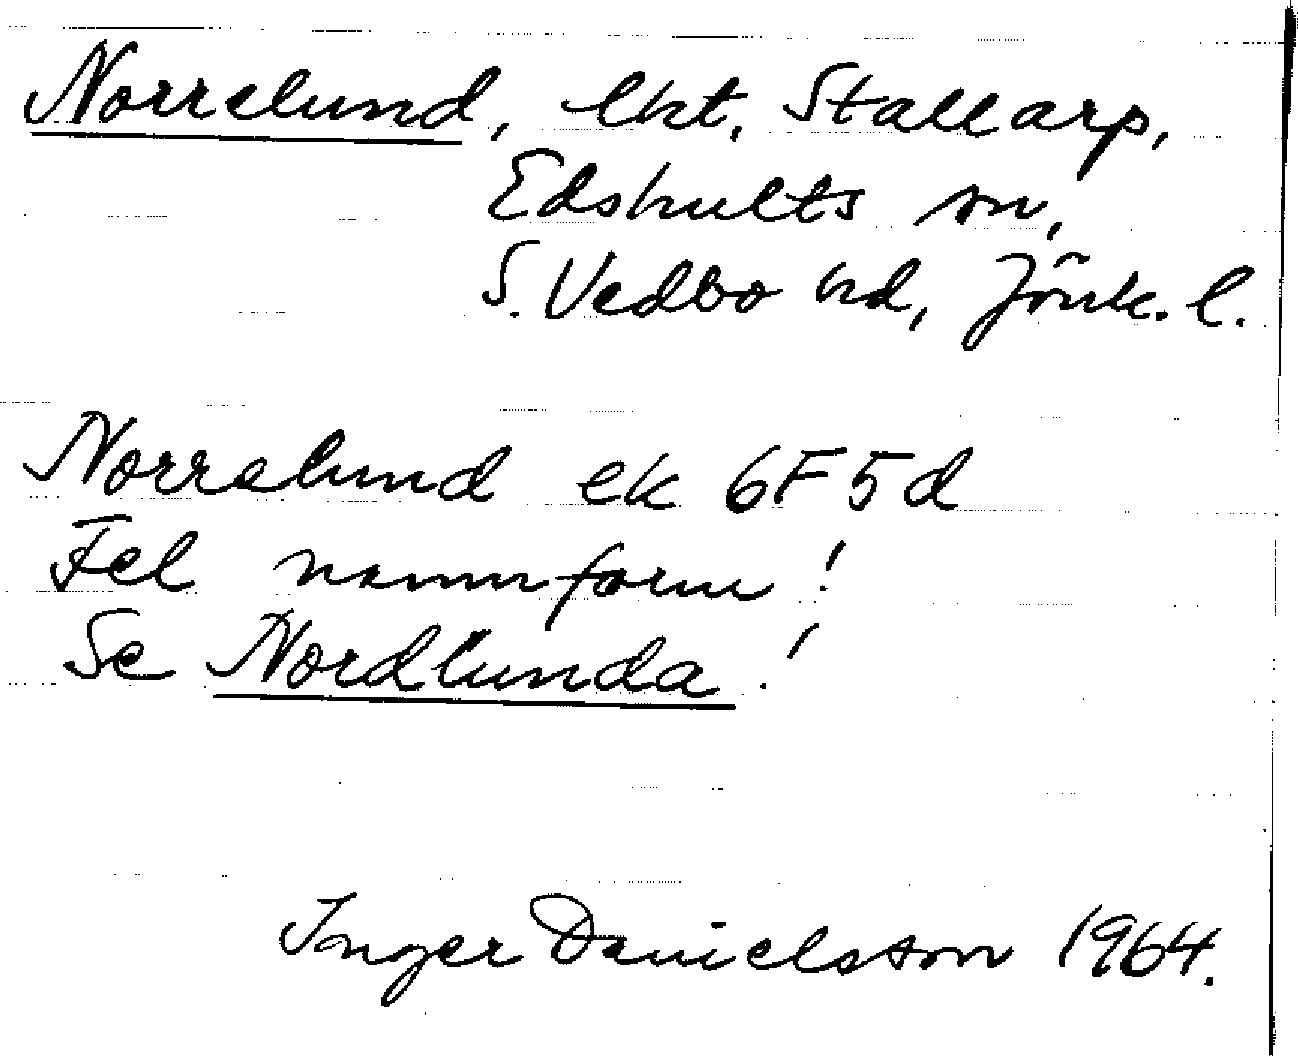 Norrelund, lht. Stallarp,
Edshults sn,
S. Vedbo hd, Jönk. l.
Norrelund ek 6F5d
Fel namnform!
Se Nordlunda!
Inger Danielsson 1964.